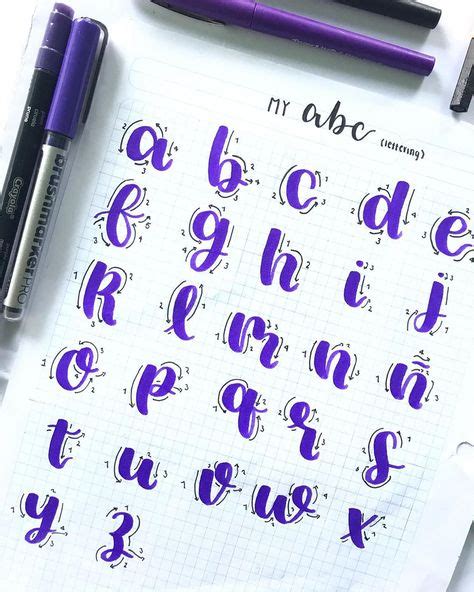 MY abc (lettering)
a b c d e
f g h i j
k l m n ñ
o p q r s
t u v w x
y z
Crayola
brushmarkerPRO